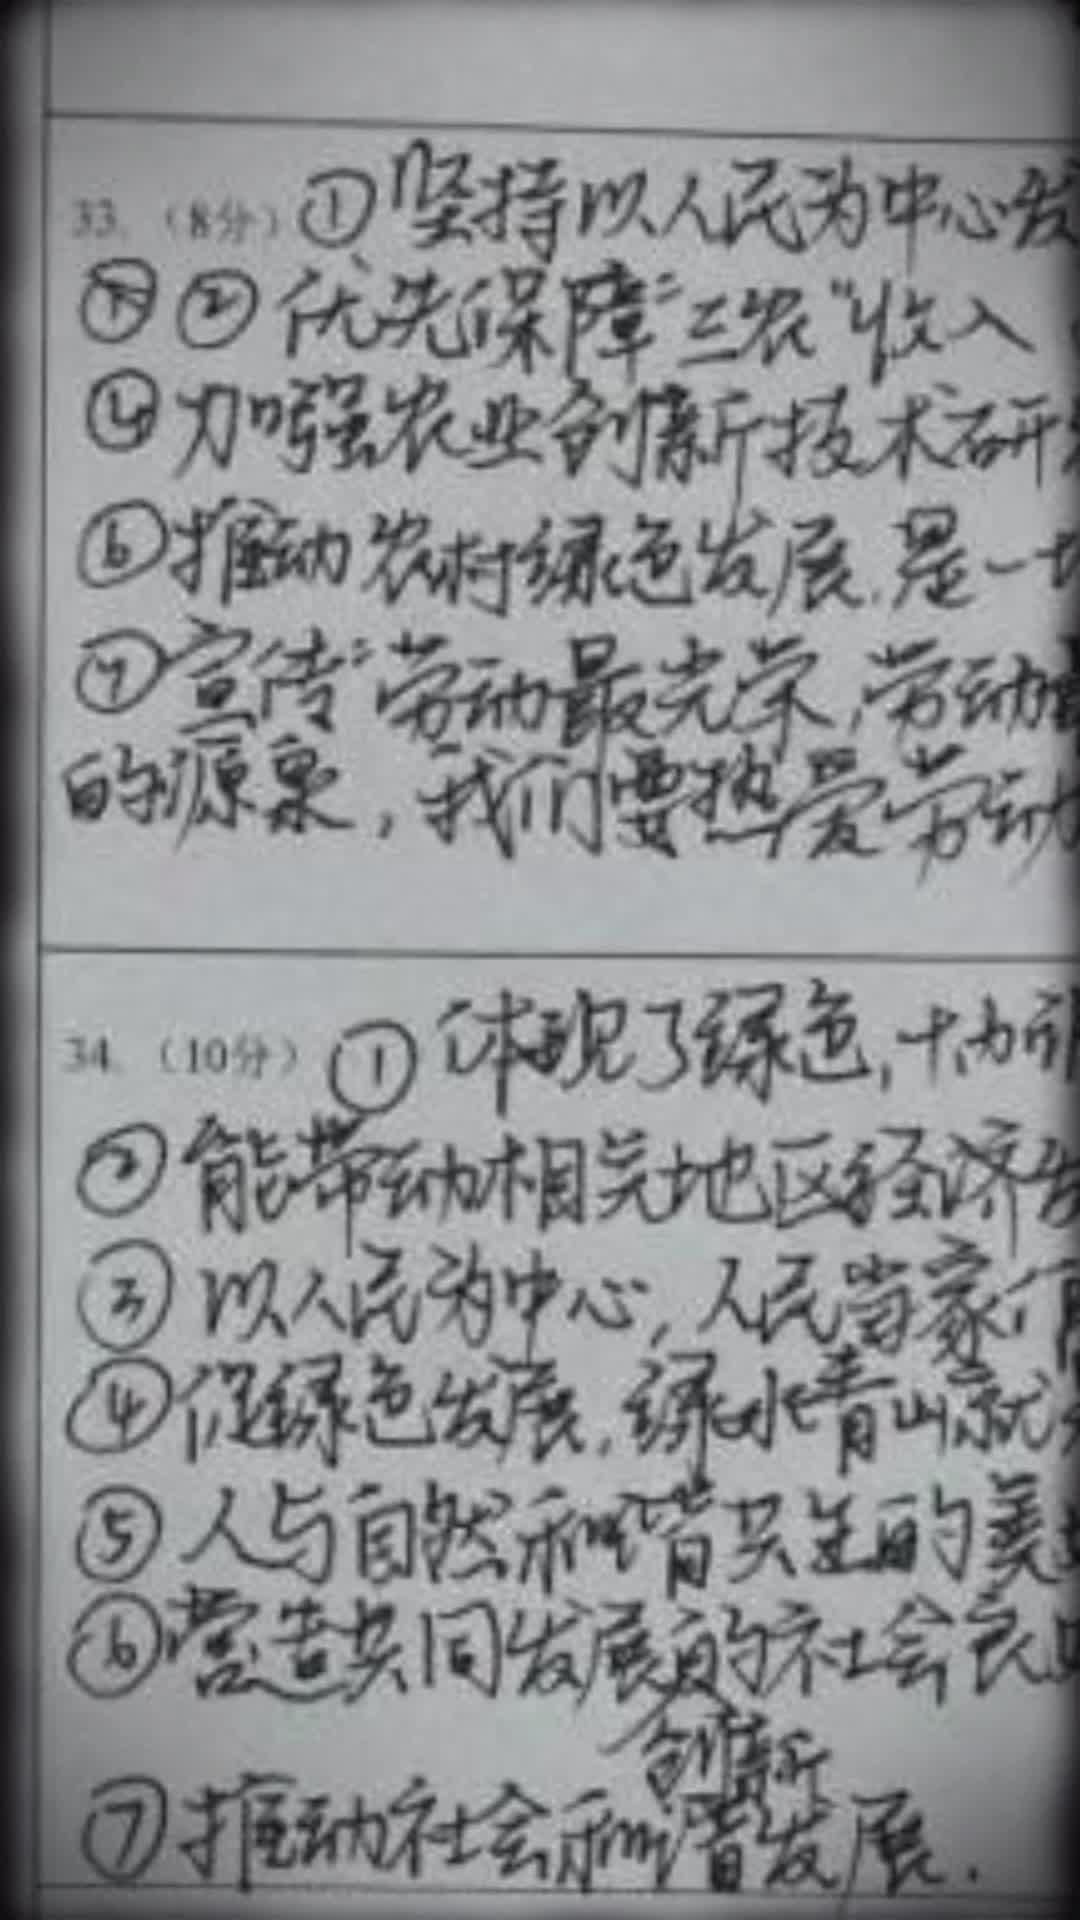 33. （8分）①坚持以人民为中心发
② 优先保障"三农"收入
④加强农业创新技术研
⑥推动农村绿色发展.是一
⑦宣传"劳动最光荣,劳动
的源泉,我们要热爱劳动
34. （10分）① 体现了绿色,
②能带动相关地区经济发
③以人民为中心,人民当家作
④促绿色发展.绿水青山就
⑤人与自然和谐共生的美
⑥营造共同发展的社会良
创新
⑦推动社会和谐发展.